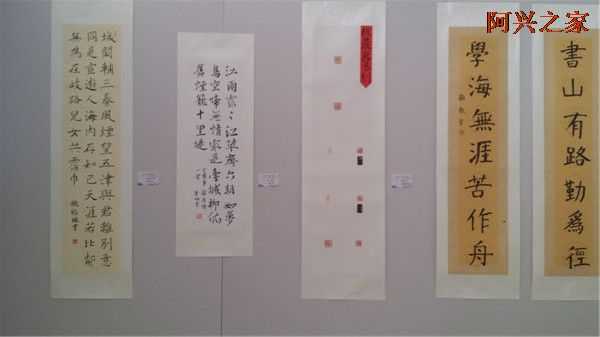 阿兴之家
書山有路勤爲徑
學海無涯苦作舟
江雨霏〻江草齊六朝如夢
鳥空啼無情最是臺城柳依
舊煙籠十里堤
城闕輔三秦風煙望五津與君離別意
同是宦遊人海内存知己天涯若比鄰
無爲在歧路兒女共沾巾